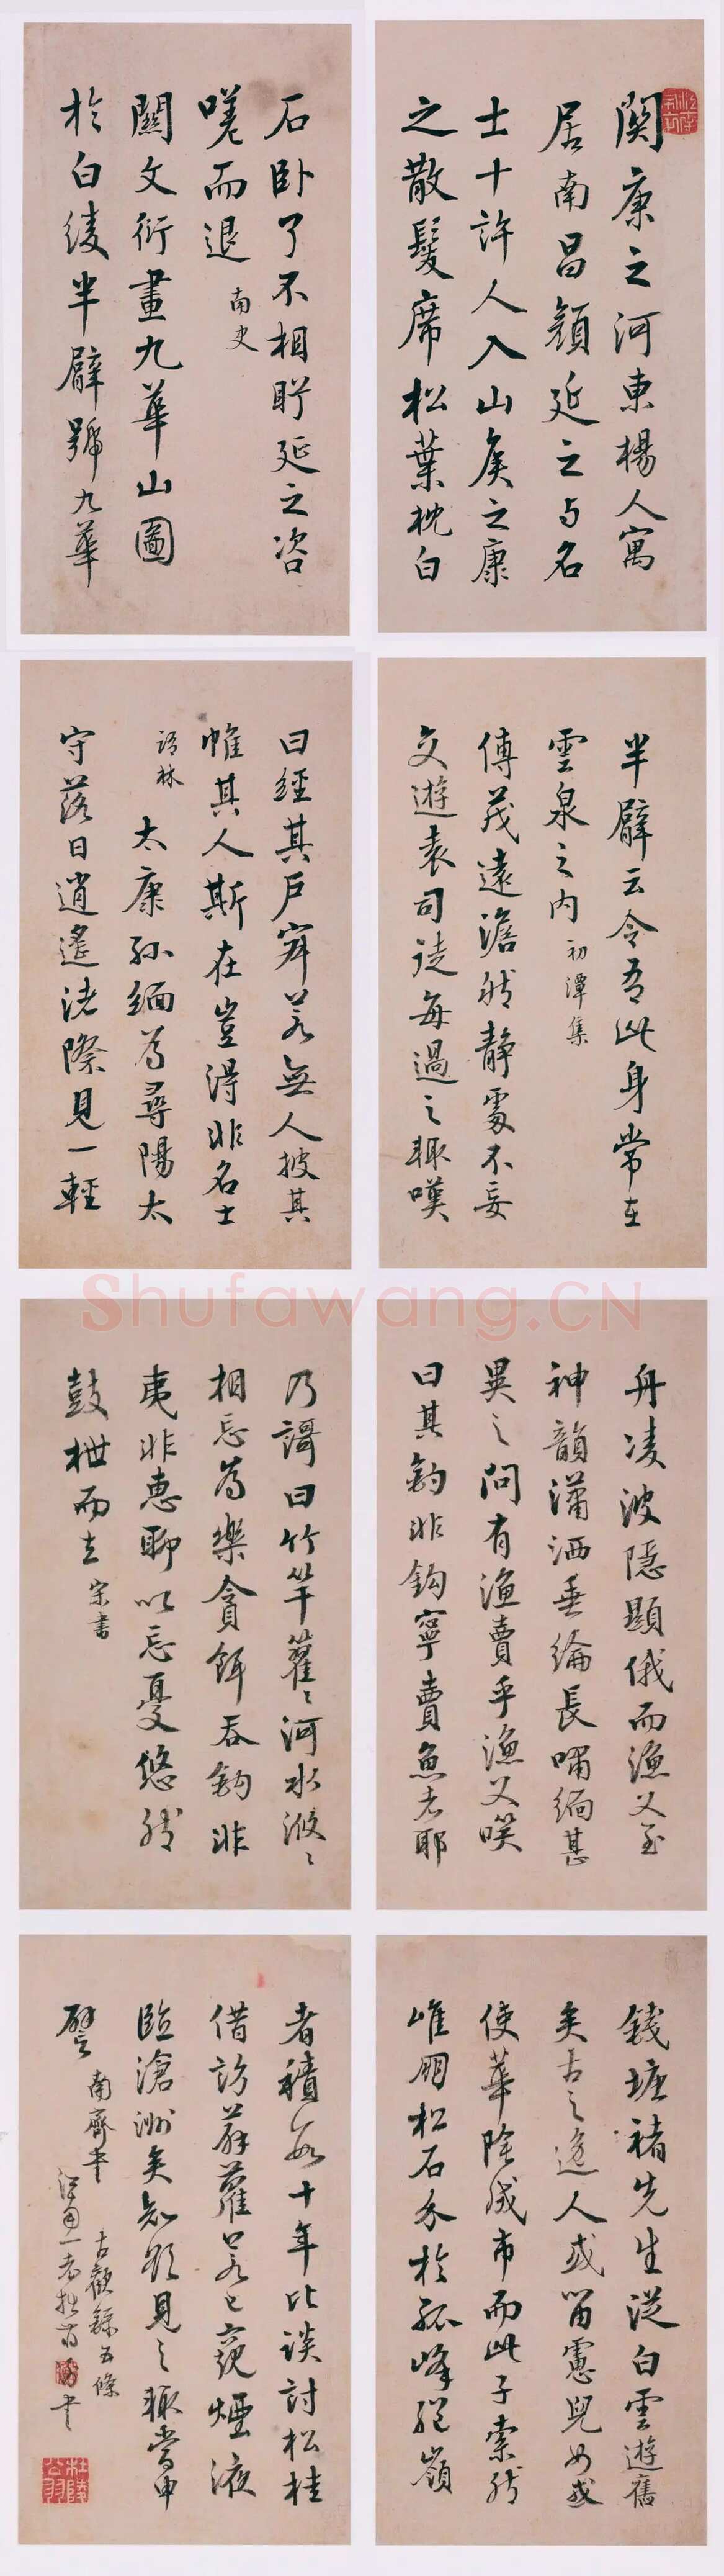 關康之河東楊人寓
居南昌顏延之与名
士十許人入山矦之康
之散髮席松葉枕白
石卧了不相眄延之咨
嗟而退 南史
關文衍畫九華山圖
於白綾半臂號九華
半臂云令吾此身常在
雲泉之内 初潭集
傅茂遠澹然靜處不妄
交遊袁司徒每過之輒嘆
曰經其戶寂若無人披其
帷其人斯在豈得非名士
語林 太康孫緬為尋陽太
守落日逍遙渚際見一輕
舟凌波隱顯俄而漁父至
神韻瀟洒垂綸長嘯緬甚
異之問有漁賣乎漁父哂
曰其釣非釣寧賣魚者耶
乃謌曰竹竿籊〻河水浟〻
相忘為樂貪餌吞鈎非
夷非惠聊以忘憂悠然
鼓枻而去 宋書
錢塘褚先生從白雲遊舊
矣古之逸人或留慮兒女或
使華陰成市而此子索然
唯朋松石介於孤峰絕嶺
者積數十年比談討松桂
借訪薜蘿若已窺煙液
臨滄洲矣知欲見之輒當申
譬 南齊書
古歡錄五條
Shufawang.CN